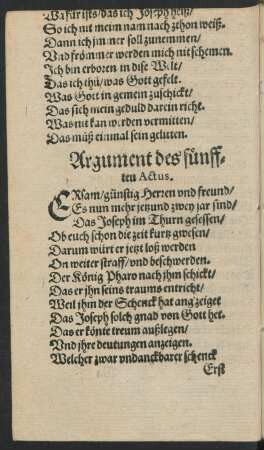 Wa für ists/das ich Joseph heiß/
So ich nit meim nam nach zthon weiß.
Dann ich immer soll zunemmen/
Vnd frömmer werden mich nit schemen.
Ich bin erboren in dise Welt/
Das ich thü/was Gott gefelt.
Was Gott in gemein zuschickt/
Das sich mein gedult darein richt.
Was nit kan werden vermitten/
Das müß einmal sein gelitten.
Argument des fünff-
ten Actus.
ERsam/günstig Herren vnd freund/
Es nun mehr jetzund zwey jar sind/
Das Joseph im Thurn gesessen/
Ob euch schon die zeit kurtz gwesen/
Darum würt er jetzt loß werden
On weiter straff/vnd beschwerden.
Der König Pharo nach jhm schickt/
Das er jhn seins traums entricht/
Weil jhm der Schenck hat angzeiget
Das Joseph solch gnad von Gott het.
Das er könte treum außlegen/
Vnd jhre deutungen anzeigen.
Welcher zwar vndanckbarer schenck
Erst